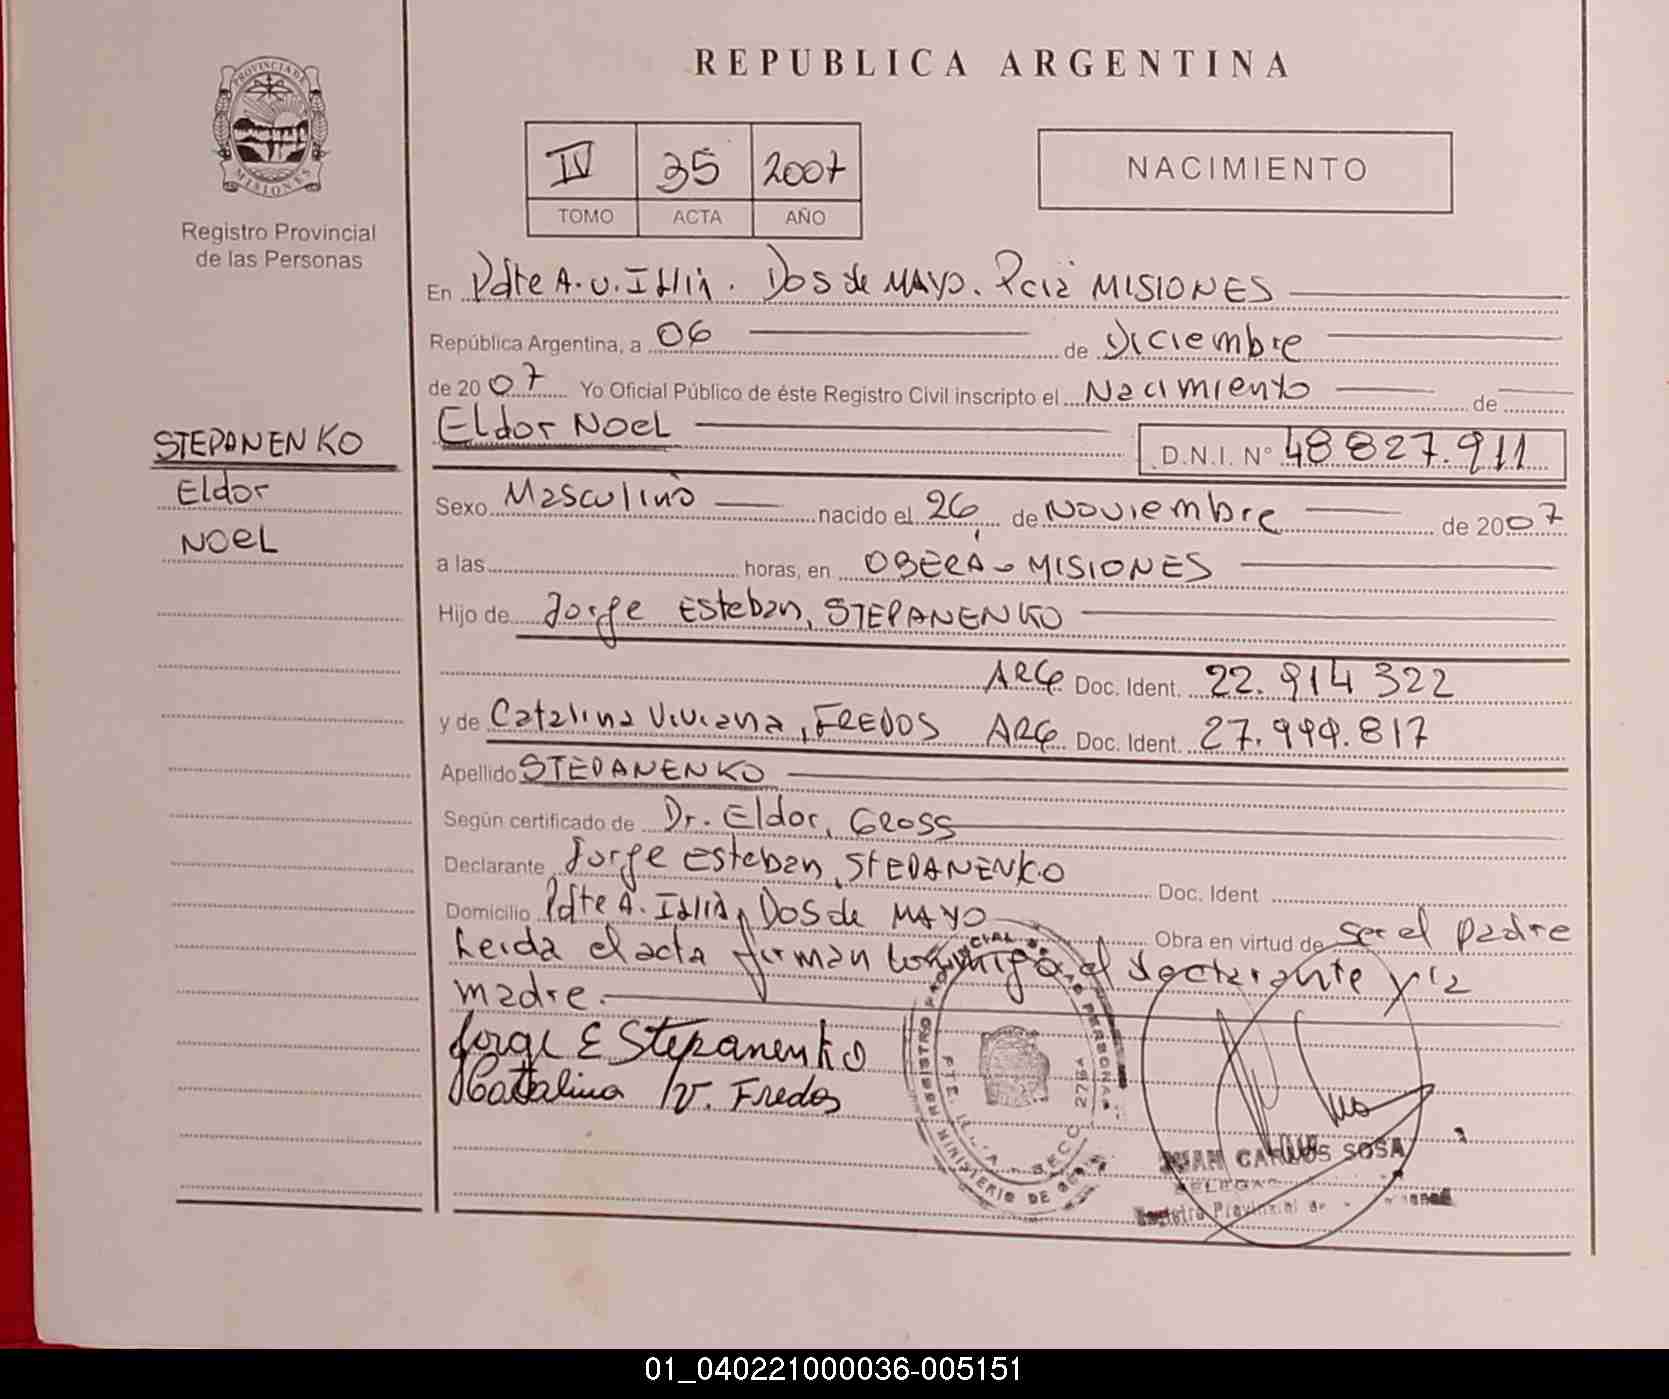 PROVINCIA DE
MISIONES
Registro Provincial
de las Personas
REPUBLICA ARGENTINA
IV 35 2007
TOMO ACTA AÑO
NACIMIENTO
En Pdte A. U. Illia. Dos de MAYO. Pcia MISIONES
República Argentina, a 06 de Diciembre
de 2007 Yo Oficial Público de éste Registro Civil inscripto el Nacimiento de
Eldor NOEL D.N.I. N° 48 827.911
STEPANENKO
Eldor
NOEL
Sexo Masculino nacido el 26 de Noviembre de 2007
a las horas, en OBERÁ - MISIONES
Hijo de Jorge Esteban, STEPANENKO
ARG Doc. Ident. 22.914 322
y de Catalina Viviana, FREDOS ARG Doc. Ident. 27.999.817
Apellido STEPANENKO
Según certificado de Dr. Eldor, GROSS
Declarante Jorge Esteban, STEPANENKO Doc. Ident
Domicilio Pdte A. Illia, Dos de MAYO Obra en virtud de ser el padre
Leida el acta firman conmigo el declarante y la
madre.
Jorge E Stepanenko
Catalina V. Fredos
JUAN CARLOS SOSA
Registro Provincial de
01_040221000036-005151